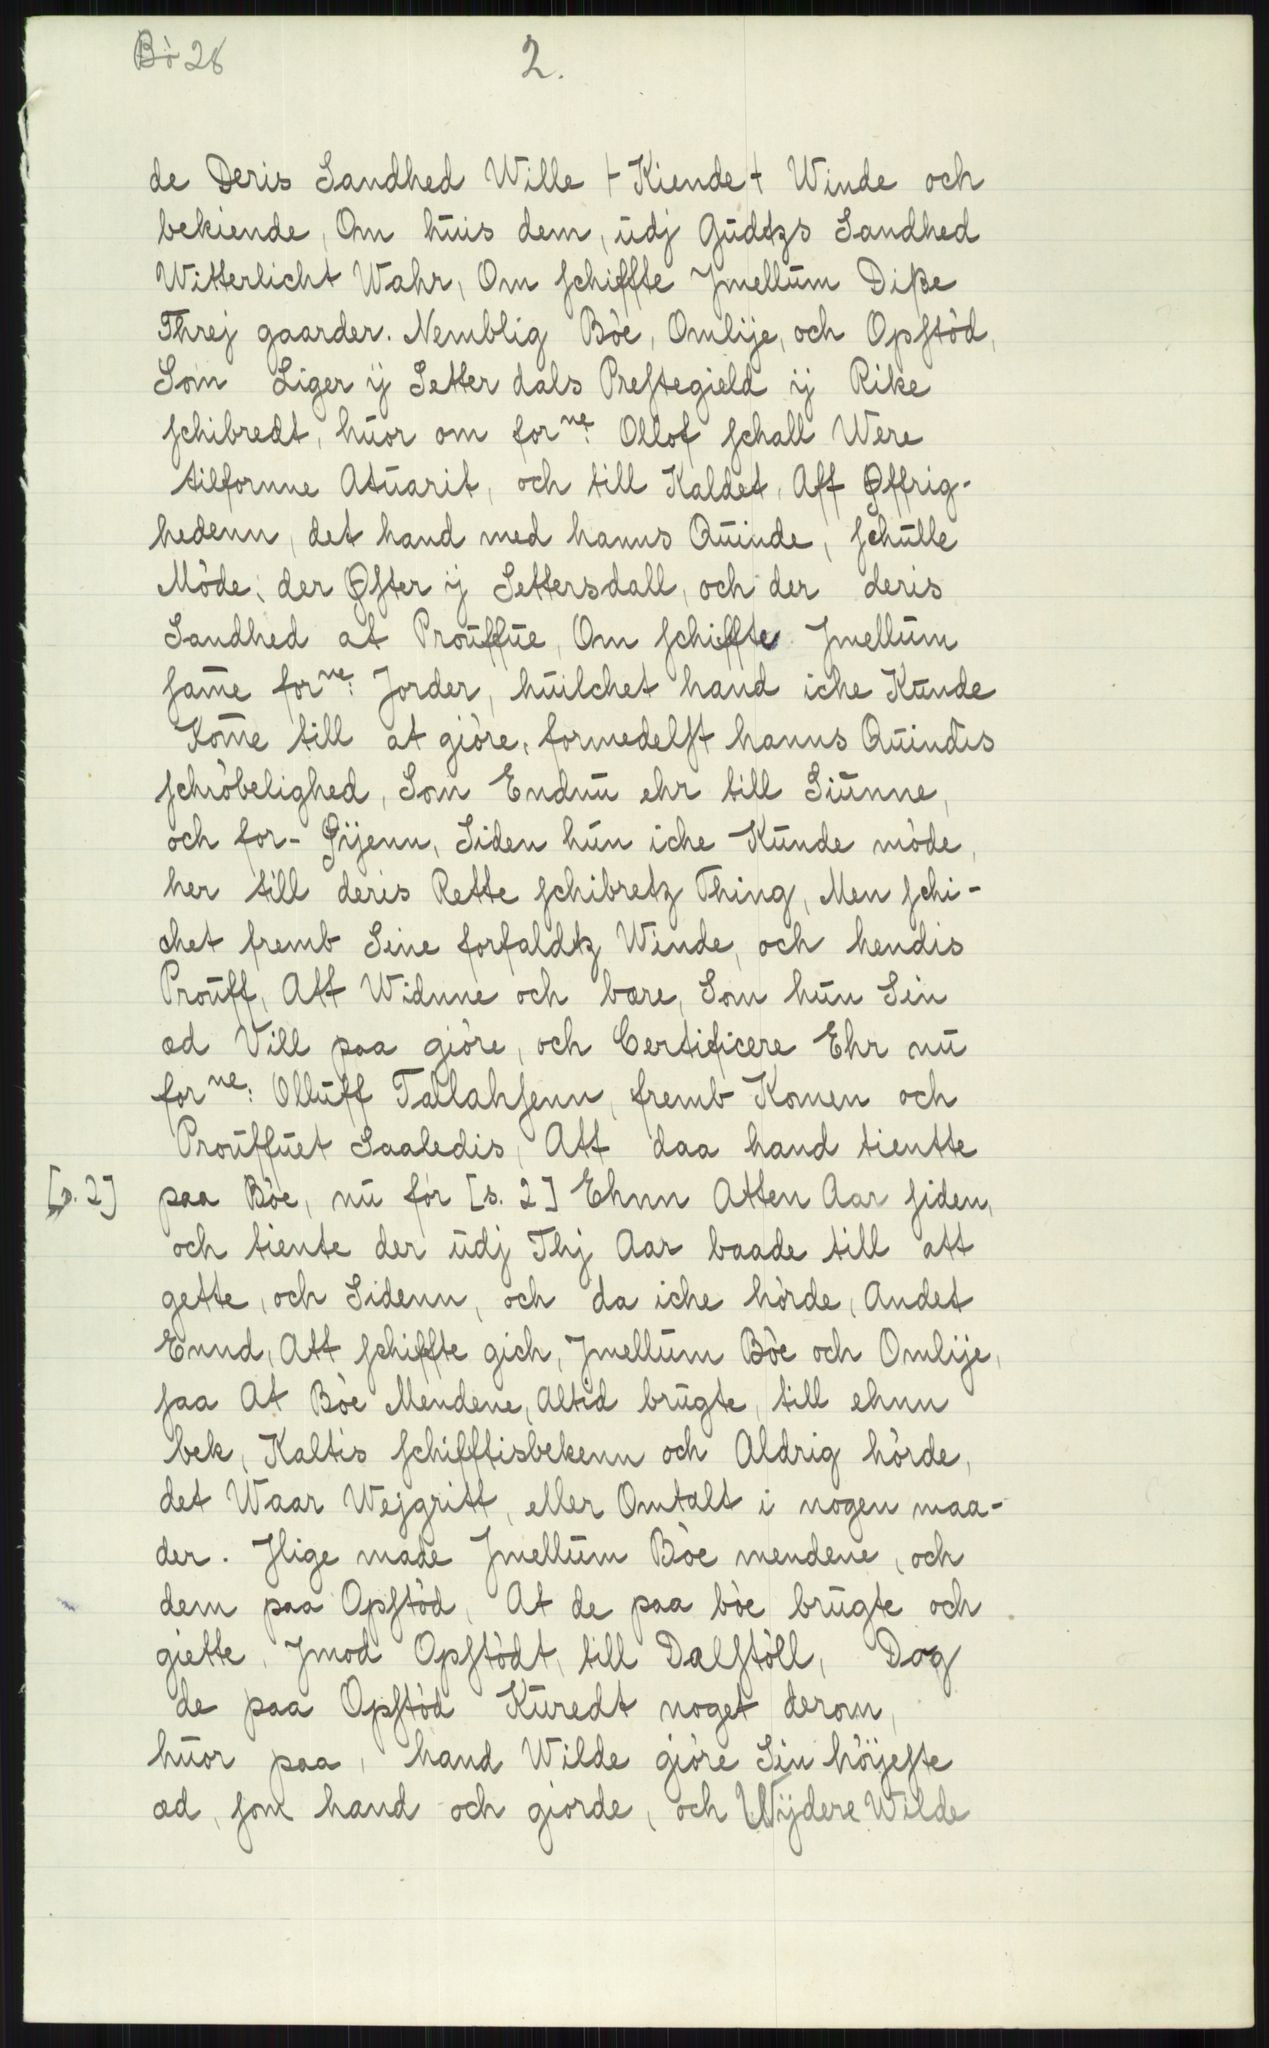 Bò 28
2.
de Deris Sandhed Wille + Kiende + Winde och
bekiende, Om huis dem, udj Gudtzs Sandhed
Witterlicht Wahr, Om schiffte Jmellum Diße
Threj gaarder. Nemblig Bòe, Omlije, och Opstòd,
Som Liger ij Setter dals Prestegield ij Rike
schibredt, huor om forne: Ollof schall Were
tilfornne Atuarit, och till Kaldet, Aff Øffrig-
hedenn, det hand med hanns Quinde, schulle
Mòde, der Øfter ij Settersdall, och der deris
Sandhed at Prouffue, Om schiffte Jmellum
sam̅e forne: Jorder, huilchet hand iche Kunde
Kom̅e till at giòre, formedelst hanns Quindis
schròbelighed, Som Endnu ehr till Siunne,
och for- Øijenn, Siden hun iche Kunde mòde,
her till deris Rette schibretz Thing, Men schi-
chet fremb Sine forfaldtz Winde, och hendis
Prouff, Att Widnne och bære, Som hun Sin
æd Vill paa giòre, och Certificere Ehr nu
forne: Olluff Tallahsenn, fremb Komen och
Prouffuet Saaledis, Att daa hand tientte
[s. 2] paa Bòe, nu for [s. 2] Ehnn Atten Aar siden,
och tiente der udj Thj Aar baade till att
gette, och Sidenn, och da iche hòrde, Andet
Ennd, Att schiffte gich, Jmellum Bòe och Omlije,
saa At Bòe Mendene, Altid brugte, till ehnn
bek, Kaltis schifftisbekenn och Aldrig hòrde,
det Waar Wejgritt, eller Omtalt i nogen maa-
der. Jlige made Jmellum Bòe mendene, och
dem paa Opstòd, At de paa bòe brugte och
giette, Jmod Opstòdt, till Dalstòll, Dog
de paa Opstòd Kuredt noget derom,
huor paa, hand Wilde giòre Sin hòijeste
æd, som hand och giorde, och Wijdere Wilde